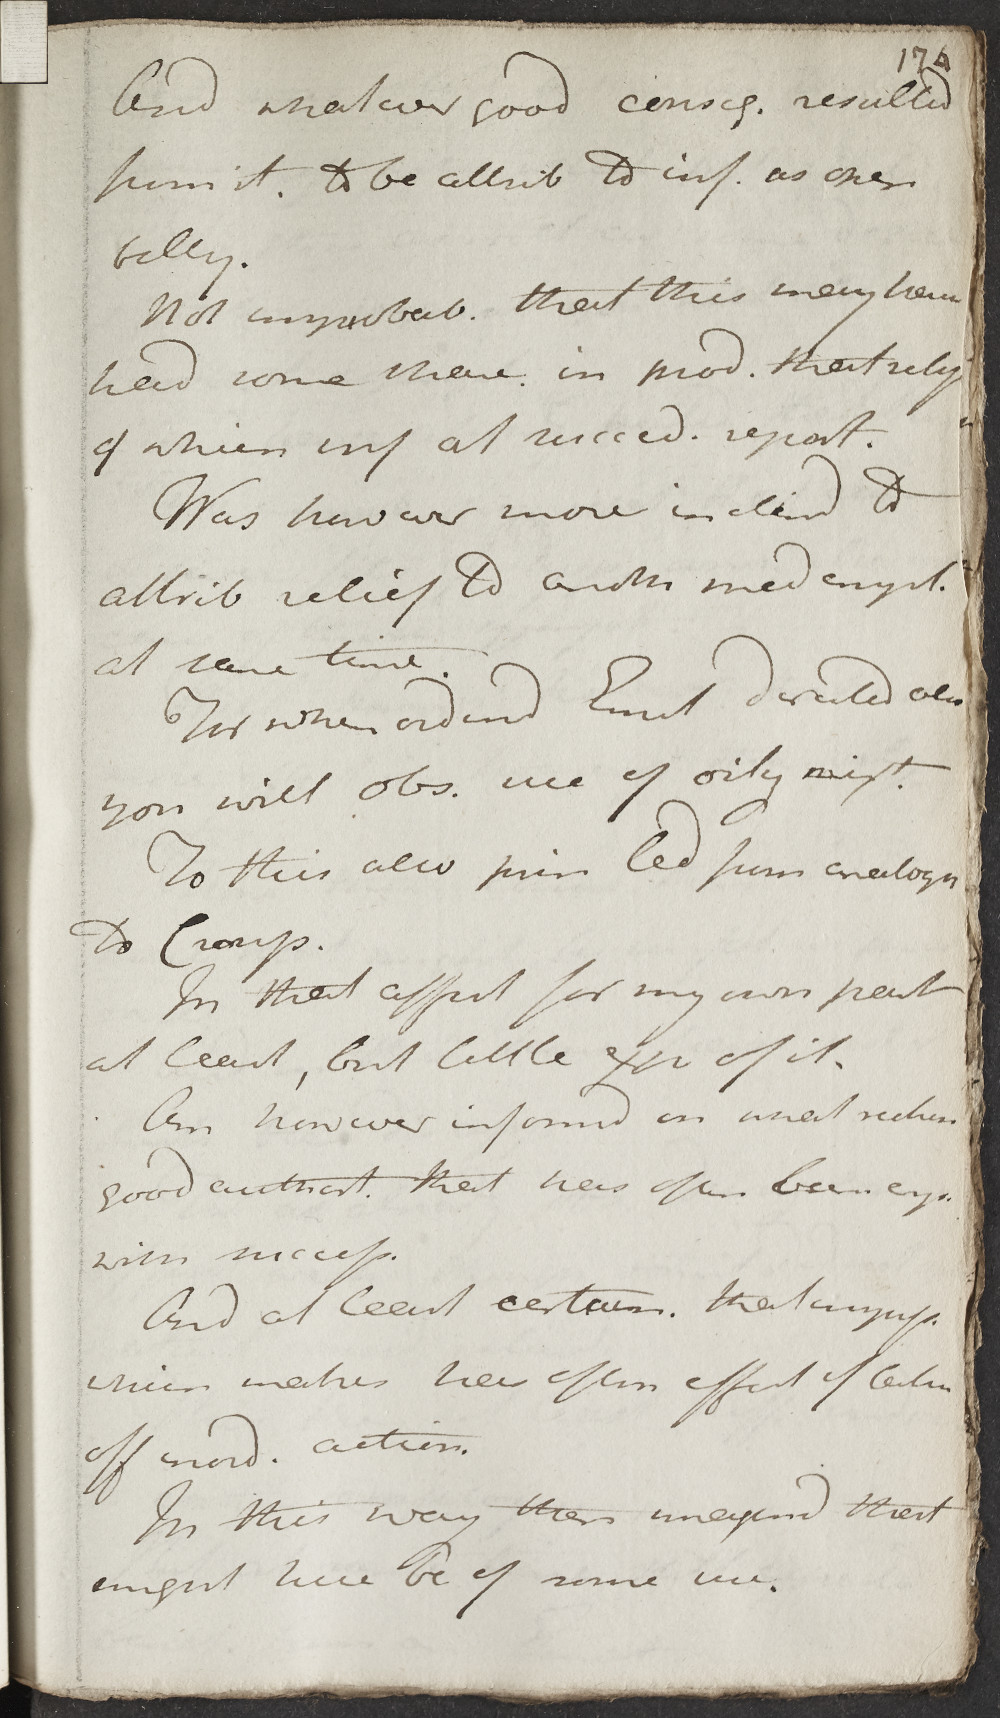 174
And whatever good conseq. resulted
from it. to be attrib to inf. as oper
belly.
Not improbab. that this may have
had some share. in prod. that rely
of which inf at succeed. report.
Was however more inclind to
attrib relief to anoth med empl.
at same time.
For when ordend Emet directed also
you will obs. use of oily mixt.
To this also prin led from analogy
to Croup.
In that affect for my own part
at least, but little exp of it.
Am however informd on what reckon
good authorit. that has often been emp.
with success.
And at least certain. that impress.
which makes has often effect of takin
off morb. action.
In this way then imagind that
might here be of some use.